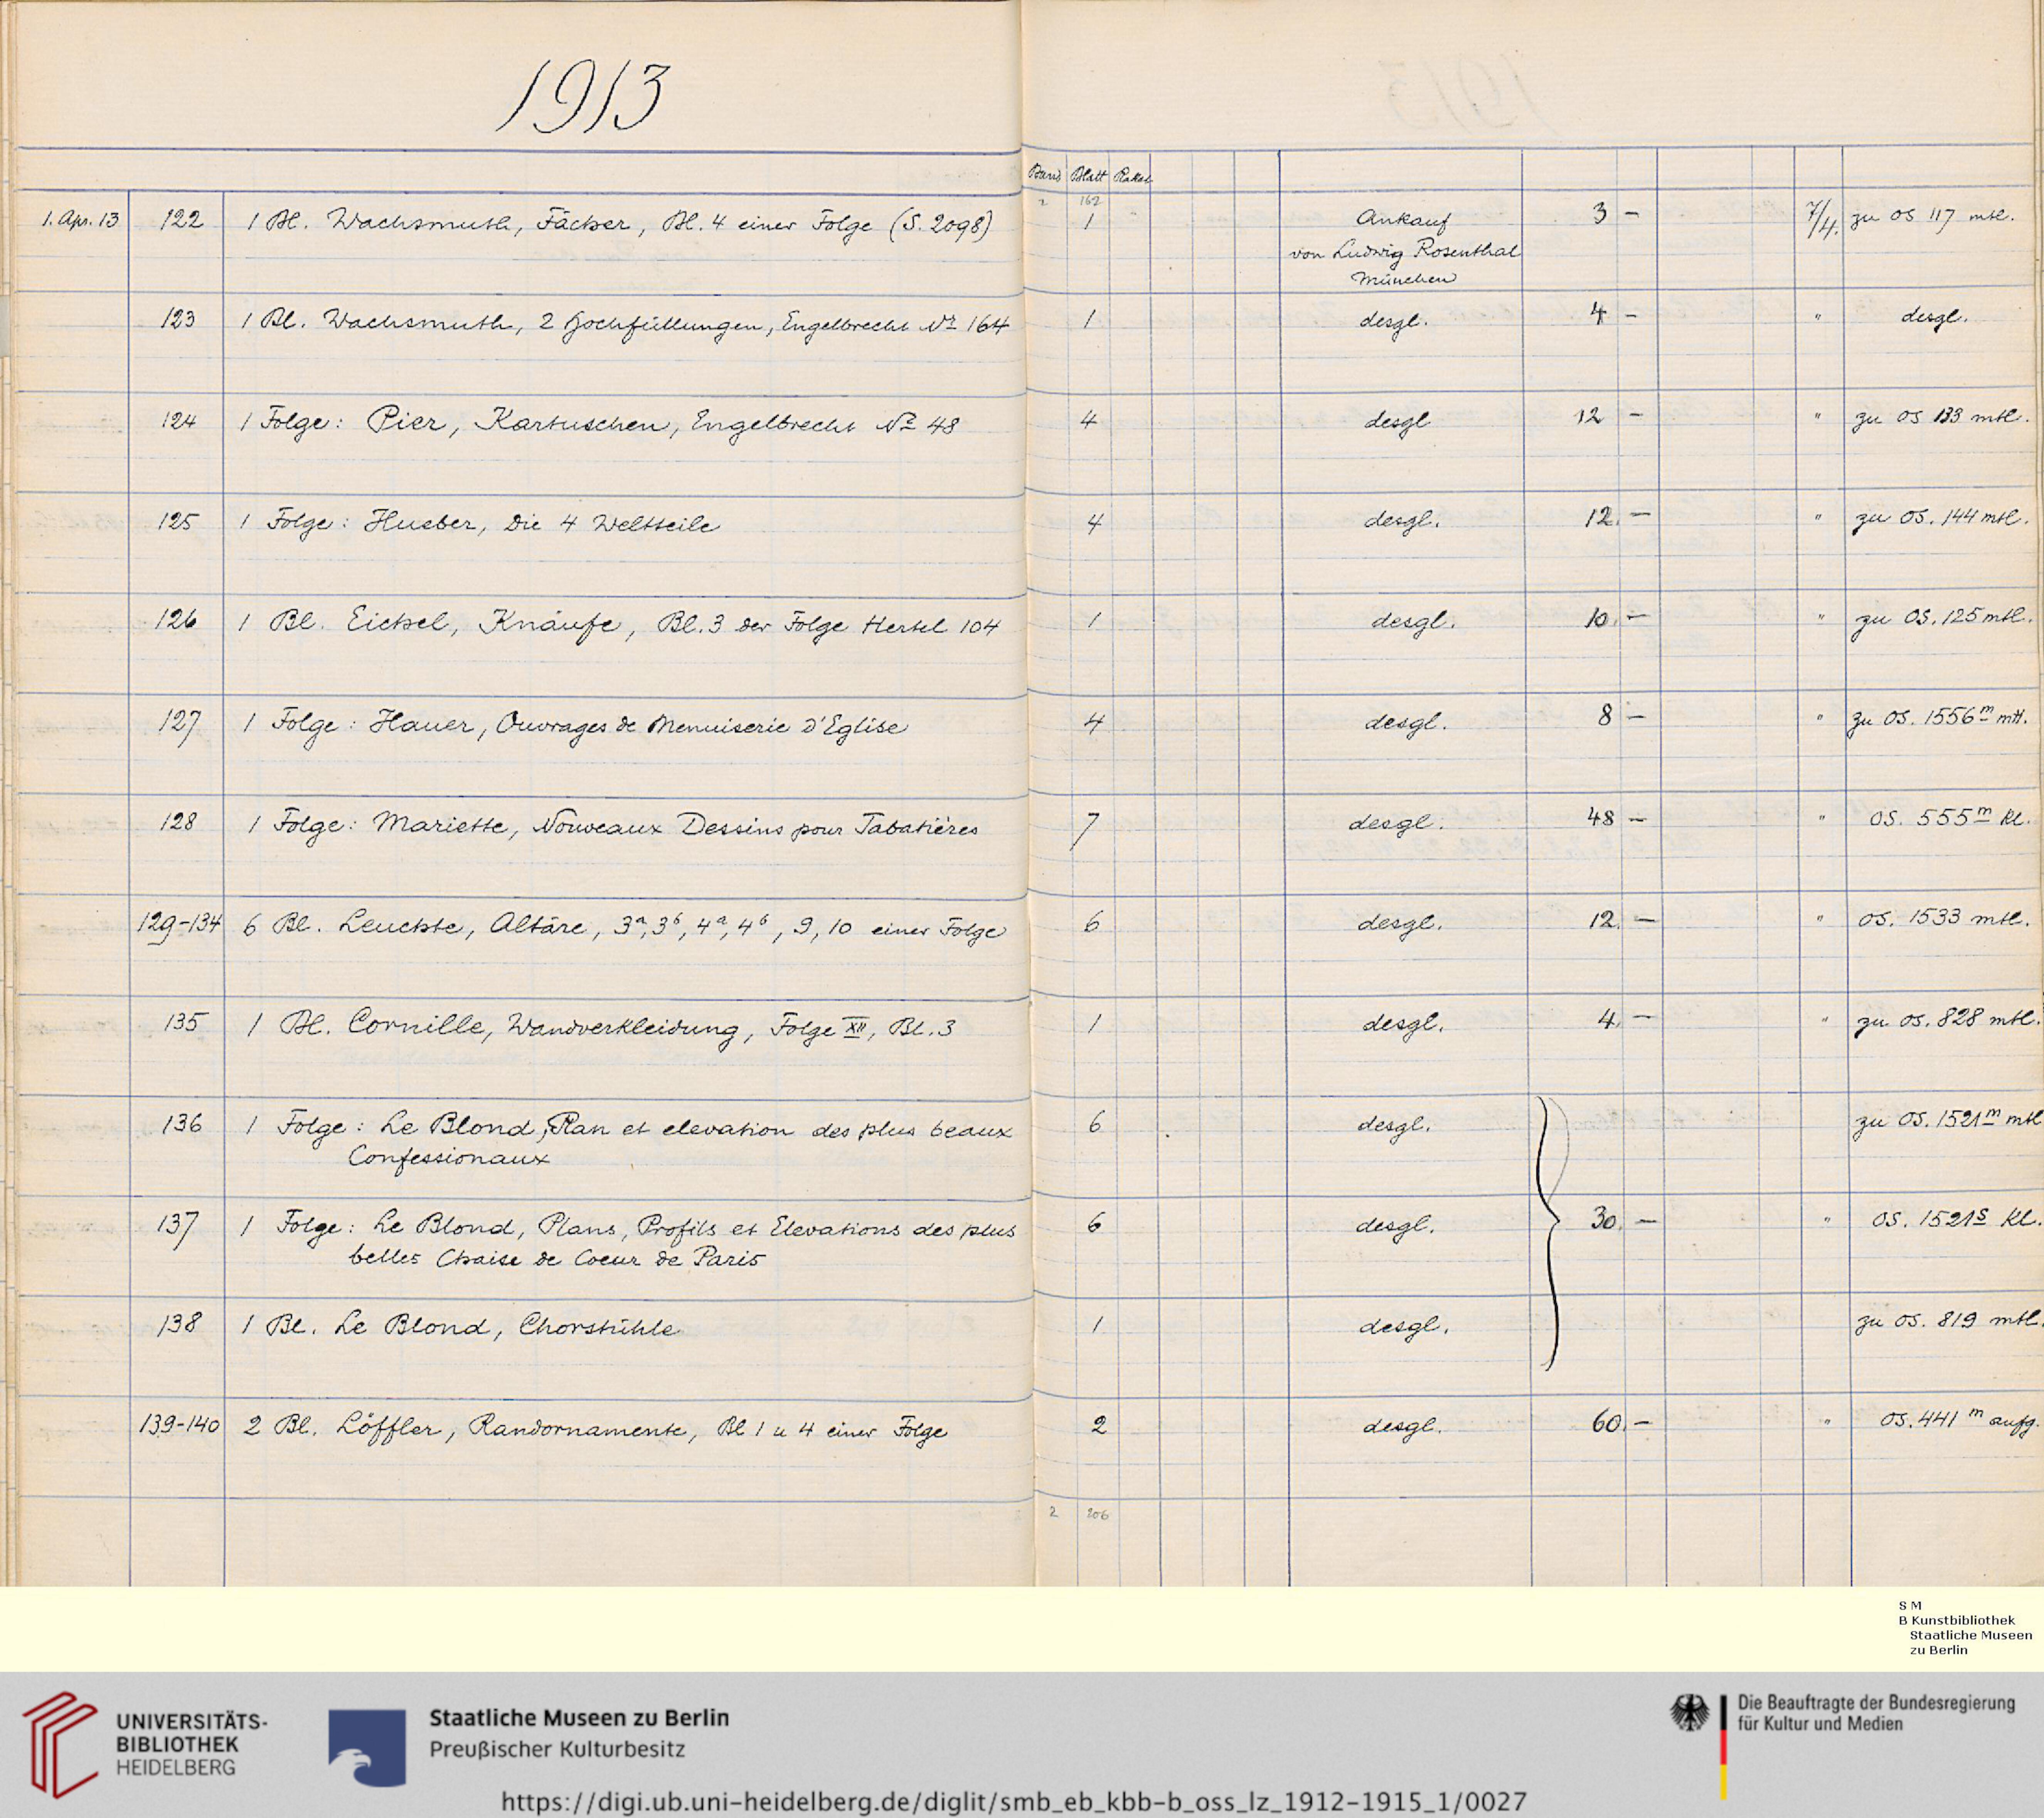 1913
Band Blatt Paket
2 162
1. Apr. 13 122 1 Bl. Wachsmuth, Fächer, Bl. 4 einer Folge (S. 2098) 1 Ankauf 3 – 7/4. zu OS 117 mtl.
von Ludwig Rosenthal
München
123 1 Bl. Wachsmuth, 2 Hochfüllungen, Engelbrecht No 164 1 desgl. 4 – " desgl.
124 1 Folge: Pier, Kartuschen, Engelbrecht No 48 4 desgl 12 – " zu OS 133 mtl.
125 1 Folge: Hueber, Die 4 Weltteile 4 desgl. 12. – " zu OS. 144 mtl.
126 1 Bl. Eichel, Knäufe, Bl. 3 der Folge Hertel 104 1 desgl. 10. – " zu OS. 125 mtl.
127 1 Folge: Hauer, Ouvrages de Menuiserie d'Eglise 4 desgl. 8 – " zu OS. 1556 m mtl.
128 1 Folge: Mariette, Nouveaux Dessins pour Tabatières 7 desgl. 48 – " OS. 555 m kl.
129–134 6 Bl. Leuchte, Altäre, 3a, 3b, 4a, 4b, 9, 10 einer Folge 6 desgl. 12. – " OS. 1533 mtl.
135 1 Bl. Cornille, Wandverkleidung, Folge XII, Bl. 3 1 desgl. 4. – " zu OS. 828 mtl.
136 1 Folge: Le Blond, Plan et elevation des plus beaux 6 desgl. zu OS. 1521 m mtl
Confessionaux
137 1 Folge: Le Blond, Plans, Profils et Elevations des plus 6 desgl. 30. – " OS. 1521 s kl.
belles Chaise de Coeur de Paris
138 1 Bl. Le Blond, Chorstühle 1 desgl. zu OS. 819 mtl.
139–140 2 Bl. Löffler, Randornamente, Bl 1 u 4 einer Folge 2 desgl. 60. – " OS. 441 m aufg.
2 206
S M
B Kunstbibliothek
Staatliche Museen
zu Berlin
UNIVERSITÄTS-
BIBLIOTHEK
HEIDELBERG
Staatliche Museen zu Berlin
Preußischer Kulturbesitz
Die Beauftragte der Bundesregierung
für Kultur und Medien
https://digi.ub.uni-heidelberg.de/diglit/smb_eb_kbb-b_oss_lz_1912-1915_1/0027